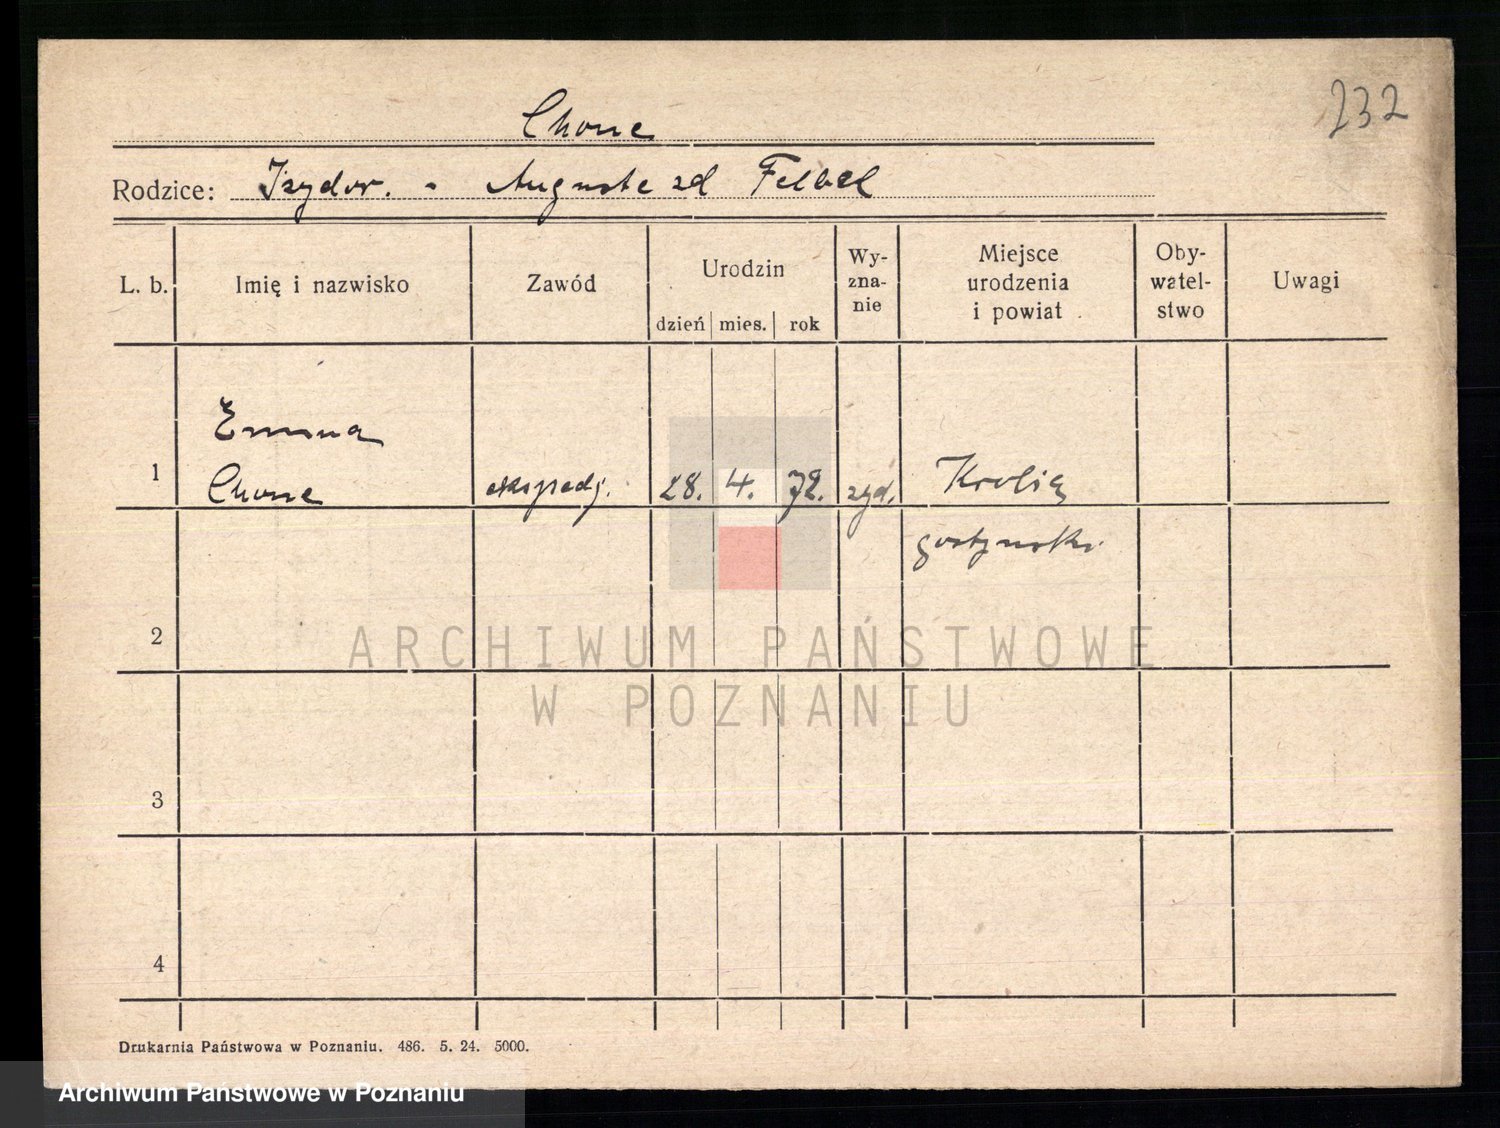 232
Chone
Rodzice: Izydor. - Auguste zd Felbel
L. b. Imię i nazwisko Zawód Urodzin dzień mies. rok Wy-zna-nie Miejsce urodzenia i powiat Oby-watel-stwo Uwagi
Emma
1 Chone ekspedj. 28. 4. 72. żyd.
gostynski
2
ARCHIWUM PAŃSTWOWE
W POZNANIU
3
4
Drukarnia Państwowa w Poznaniu. 486. 5. 24. 5000.
Archiwum Państwowe w Poznaniu